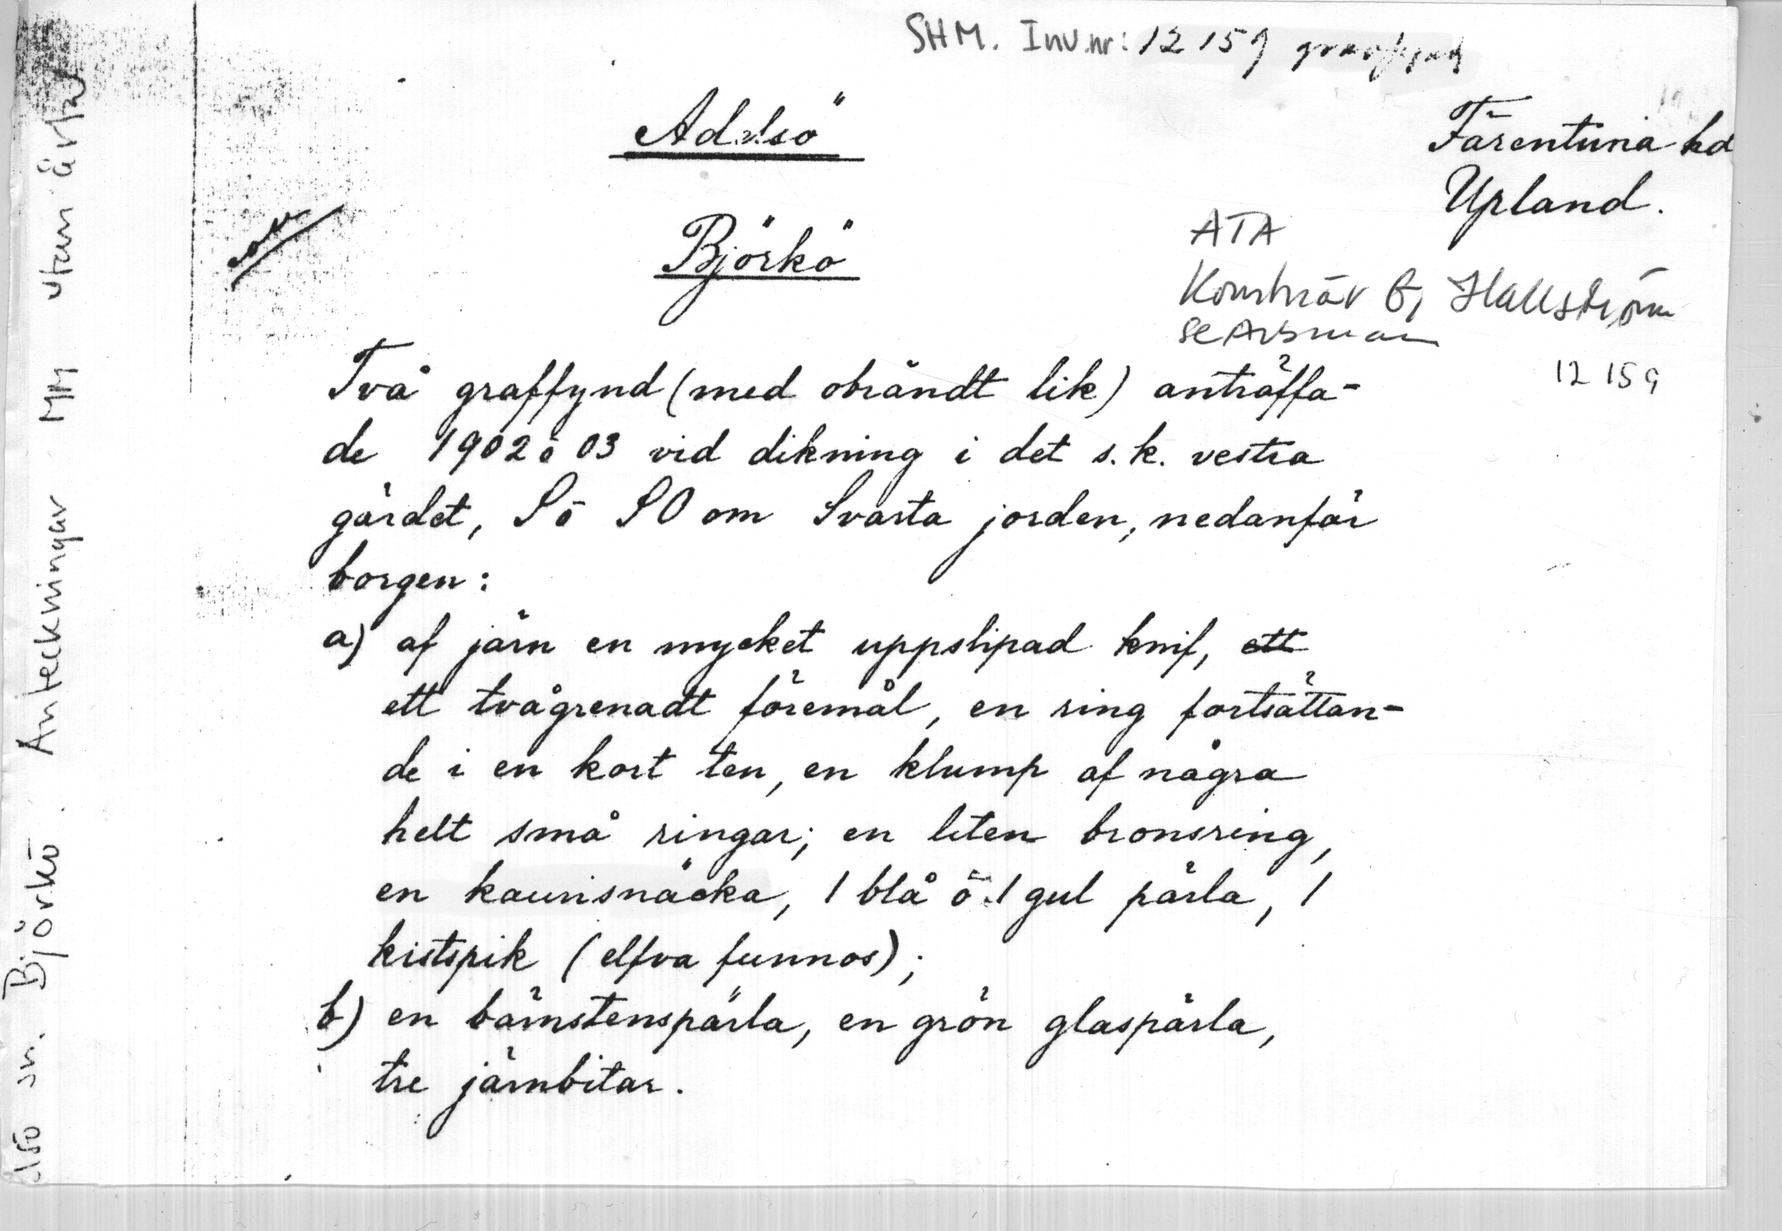 SHM. Inv.nr: 12 159
Adelsö
Färentuna hd
Upland.
Björkö
ATA
G, Hallström
12 159
Två graffynd (med obrändt lik) anträffa-
de 1902 o 03 vid dikning i det s.k. vestra
gärdet, S o SO om Svarta jorden, nedanför
borgen:
a) af järn en mycket uppslipad knif, ett
ett tvågrenadt föremål, en ring fortsättan-
de i en kort ten, en klump af några
helt små ringar; en liten bronsring,
en kaurisnäcka, 1 blå o 1 gul pärla, 1
kistspik (elfva funnos);
b) en bärnstenspärla, en grön glaspärla,
tre järnbitar.
sn. Björkö. Anteckningar MM utan årtal